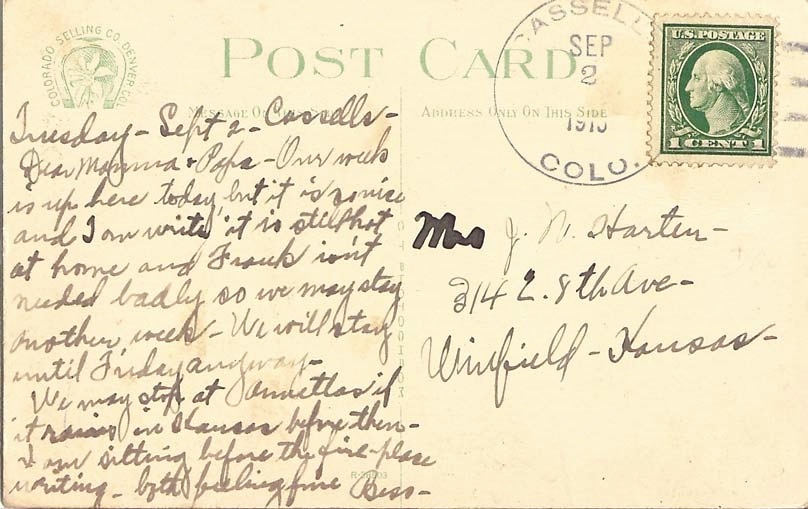 COLORADO SELLING CO. DENVER COLO
POST CARD
MESSAGE ON THIS SIDE
ADDRESS ONLY ON THIS SIDE
CASSELLS
SEP
2
COLO.
U.S. POSTAGE
1 CENT 1
Tuesday - Sept 2 - Cassells -
Dear Mamma & Papa - Our week
is up here today but it is so nice
and I am write it is still hot
at home and Frank isn't
needed badly so we may stay
another week - We will stay
until Friday anyway -
We may stop at Annettas if
it rains in Kansas before then -
I am sitting before the fire-place
writing - both feeling fine Bess -
Mrs J. W. Harten -
314 E. 8th Ave -
Winfield - Kansas -